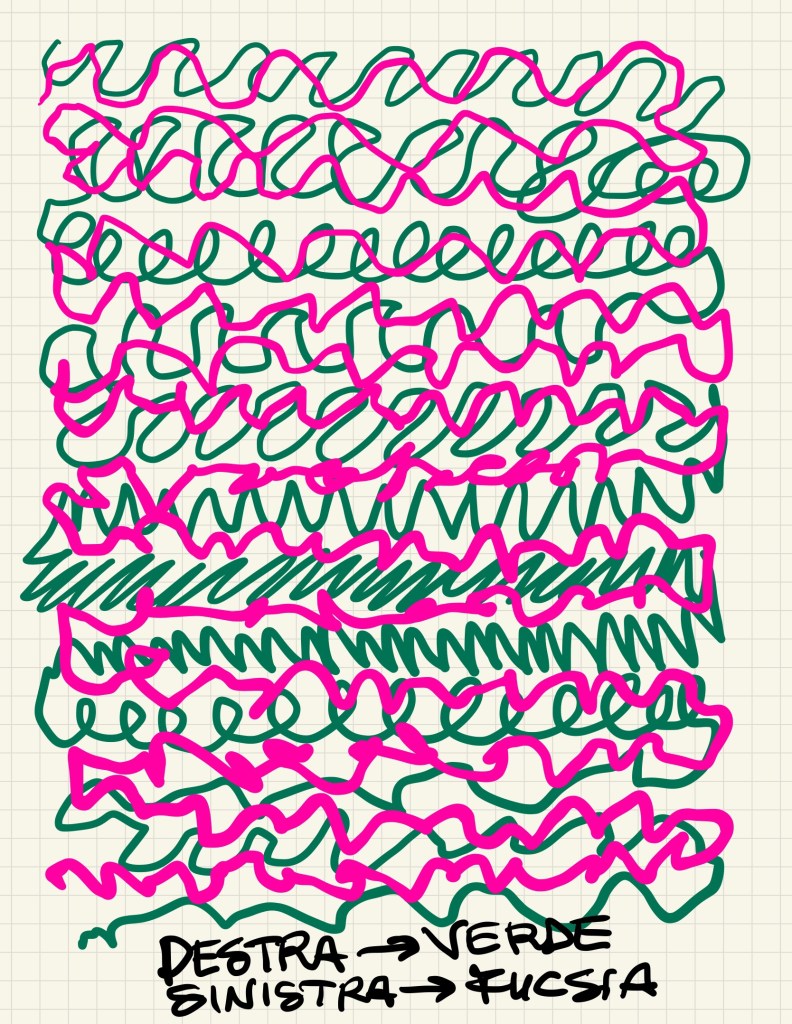 DESTRA → VERDE
SINISTRA → FUCSIA